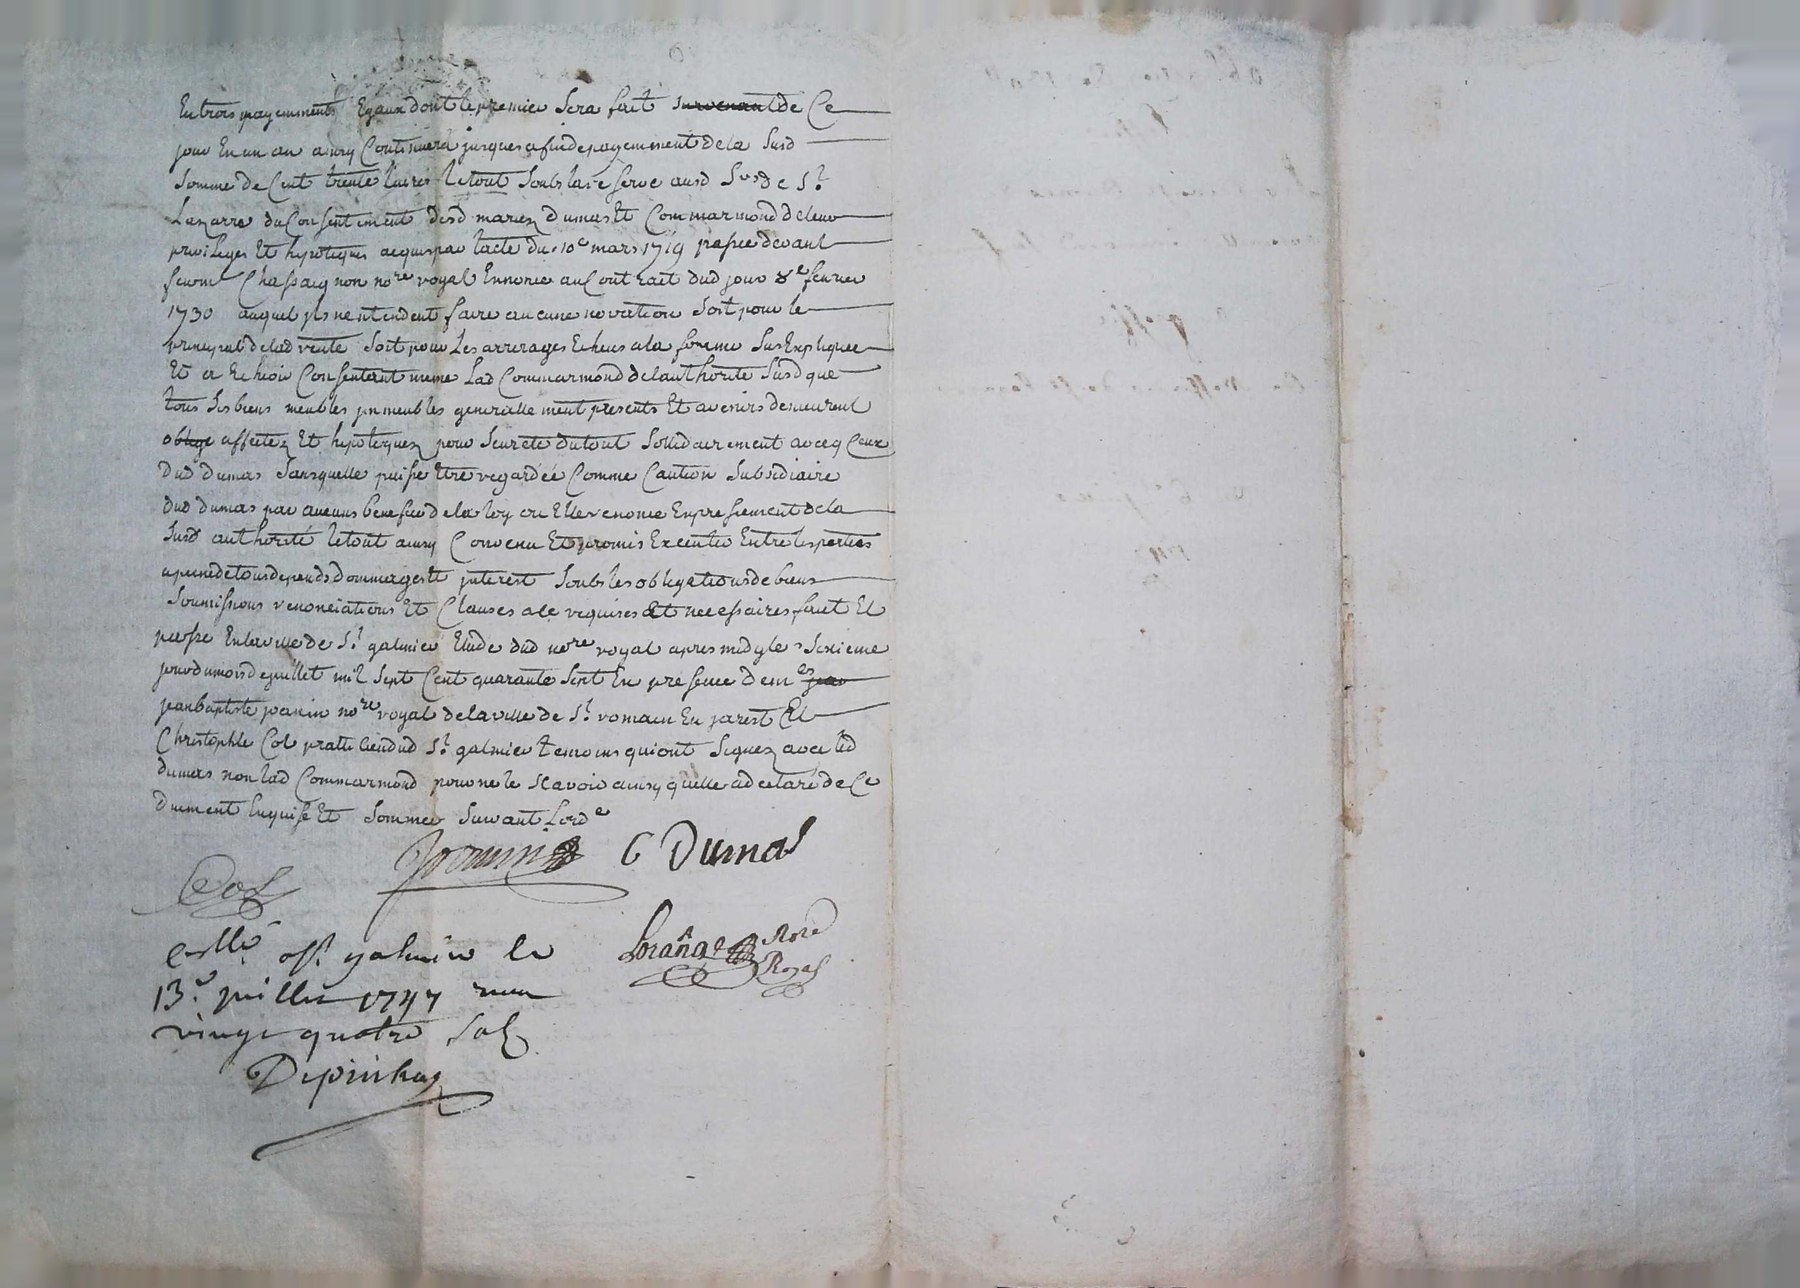 En trois payemments Egaux dont le premier sera fait survenant de Ce
jour En un an ainsy Continuera jusques a fin de payemment de la susd
somme de Cent trente livres le tout soubs la reserve ausd Srs de St
Lazarre du Consentiment desd mariez dumas Et Commarmond de leur
privileges Et hipoteques acquis par lacte du 10e mars 1719 passee devant
feu me Chassaignon nore royal Ennonce au Contract dud jour 8e fevrier
1730 auquel jls nentendent faire aucune novation soit pour le
principal de lad vente soit pour Les arrerages Echeus a la forme sus Expliquee
Et a Echoir Consentent meme Lad Commarmond de lauthorite susd que
tous ses biens meubles jmmeubles generallement presents Et avenirs demeurent
oblige affectez Et hipotequez pour seurete du tout sollidairement avecq Ceux
dud dumas sans quelle puisse Etre regardée Comme Caution subsidiaire
dud dumas par aucuns benefice de la loy ou Elle renonce Expressement de la
susd authorité le tout ainsy Convenu Et promis Executer Entre les parties
a peine de tous depends dommages Et jnterest soubs les obligations de biens
soumissions renonciations Et Clauses a ce requises Et necessaires fait Et
passe En la ville de St galmier Etude dud nore royal apres midy le sixieme
jour du mois de juillet mil sept Cent quarante sept En presence de me jean
jean baptiste joanin nore royal de la ville de St romain En jarest Et
Christophle Col praticien dud St galmier temoins qui ont signez avec led
dumas non lad Commarmond pour ne le scavoir ainsy quelle a declaré de Ce
duement Enquise Et sommee suivant Lorde
Joanin C Dumas
Col
Corllé a St galmier le Lorange Nore
13e juillet 1747 Royal
vingt quatre sols